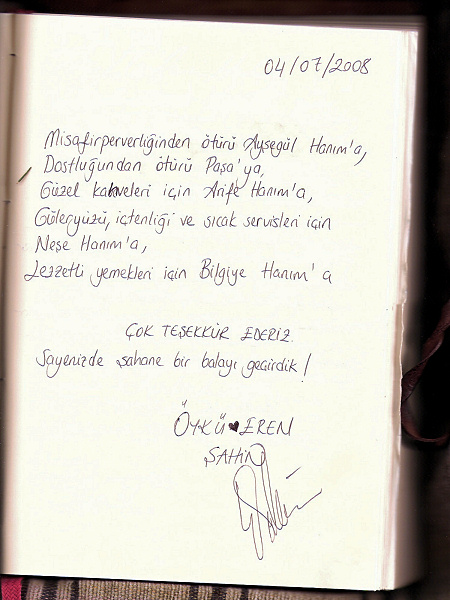 04/07/2008
Misafirperverliğinden ötürü Ayşegül Hanım'a,
Dostluğundan ötürü Paşa'ya,
Güzel kahveleri için Arife Hanım'a,
Güleryüzü, içtenliği ve sıcak servisleri için
Neşe Hanım'a,
Lezzetli yemekleri için Bilgiye Hanım'a
ÇOK TEŞEKKÜR EDERİZ.
Sayenizde şahane bir balayı geçirdik!
ÖYKÜ ♥ EREN
ŞAHİN